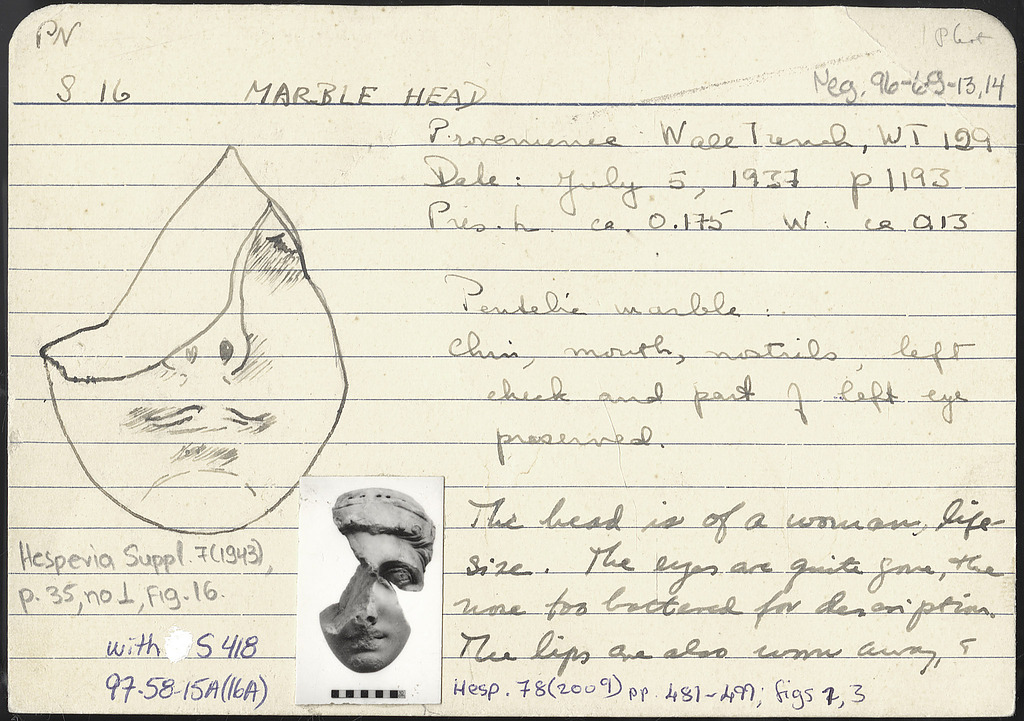 PN
1 Phot
S 16 MARBLE HEAD
Neg. 96-69-13,14
Provenience Wall Trench, WT 129
Date: July 5, 1937 p 1193
Pres. h. ca. 0.175 W: ca 0.13
Pentelic marble:
Chin, mouth, nostrils, left
cheek and part of left eye
preserved.
The head is of a woman, life-
size. The eyes are quite gone, the
nose too battered for description.
The lips are also worn away,
Hesperia Suppl. 7(1943),
p. 35, no 1, Fig. 16.
with S 418
97-58-15A(16A)
Hesp. 78(2009) pp. 481-497; figs 1, 3